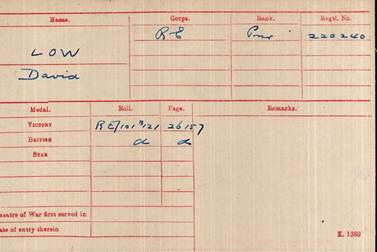 Name. Corps. Rank. Regtl. No.
LOW R E Pnr 220240
David
Medal. Roll. Page. Remarks.
VICTORY RE/101 B121 26157
BRITISH do do
STAR
Theatre of War first served in
Date of entry therein
K. 1380